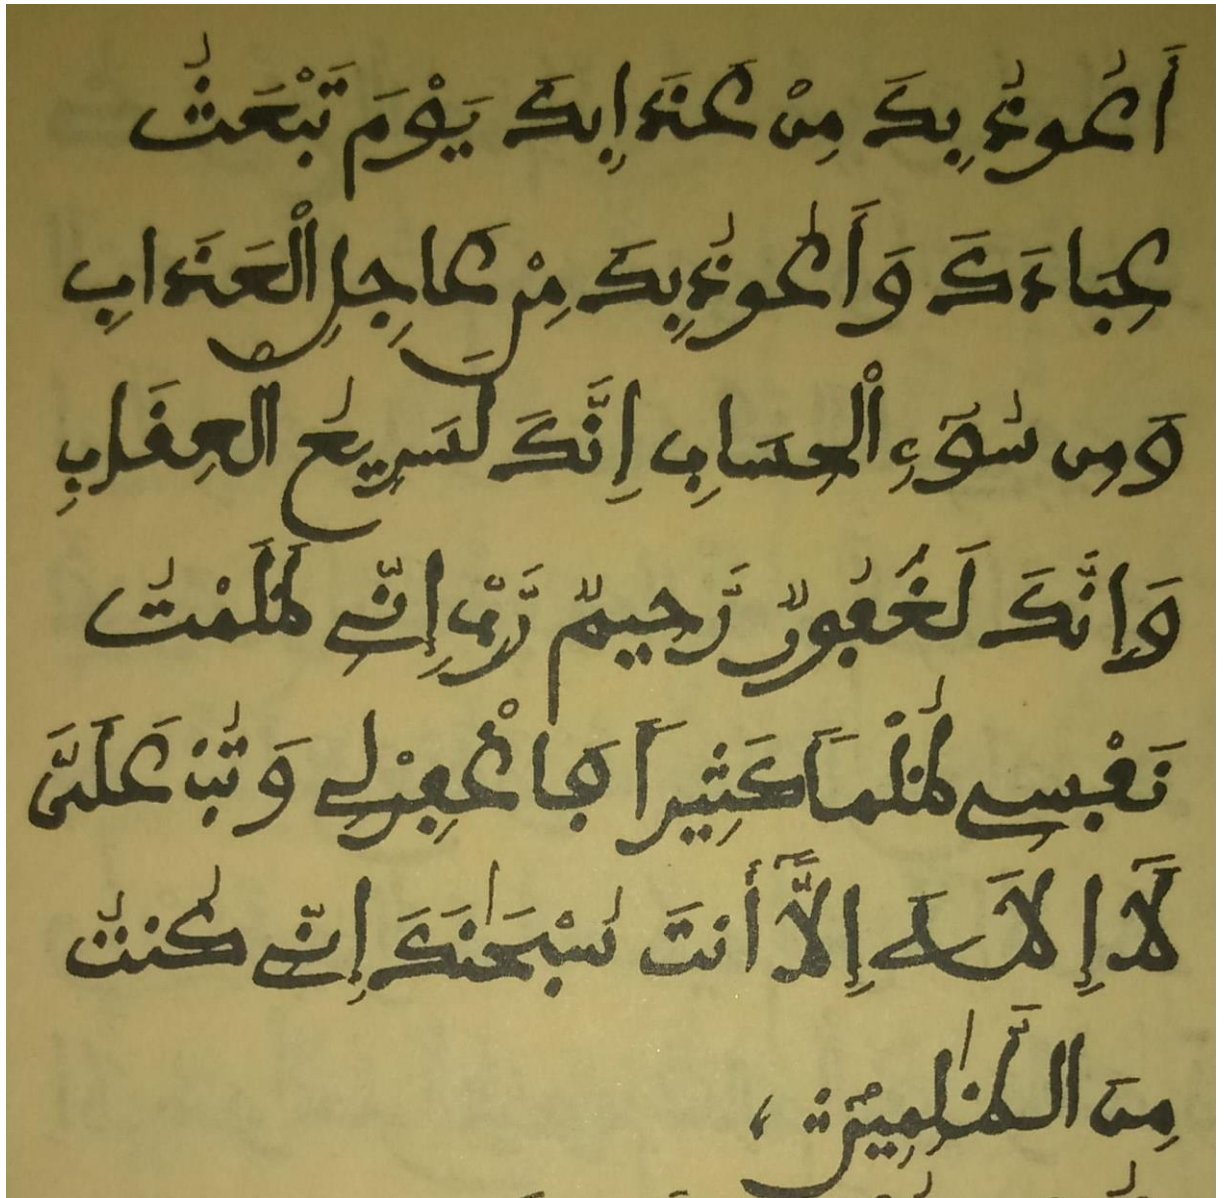 أَعُوذُ بِكَ مِنْ عَذَابِكَ يَوْمَ تَبْعَثُ
عِبَادَكَ وَأَعُوذُ بِكَ مِنْ عَاجِلِ الْعَذَابِ
وَمِن سُوٓءِ الْحِسَابِ إِنَّكَ لَسَرِيعُ الْعِقَابِ
وَإِنَّكَ لَغَفُورٌ رَّحِيمٌ رَّبِّ إِنِّي ظَلَمْتُ
نَفْسِي ظُلْمًا كَثِيرًا فَاغْفِرْ لِي وَتُبْ عَلَيَّ
لَّا إِلَـٰهَ إِلَّا أَنتَ سُبْحَـٰنَكَ إِنِّي كُنتُ
مِنَ الظَّـٰلِمِينَ ،